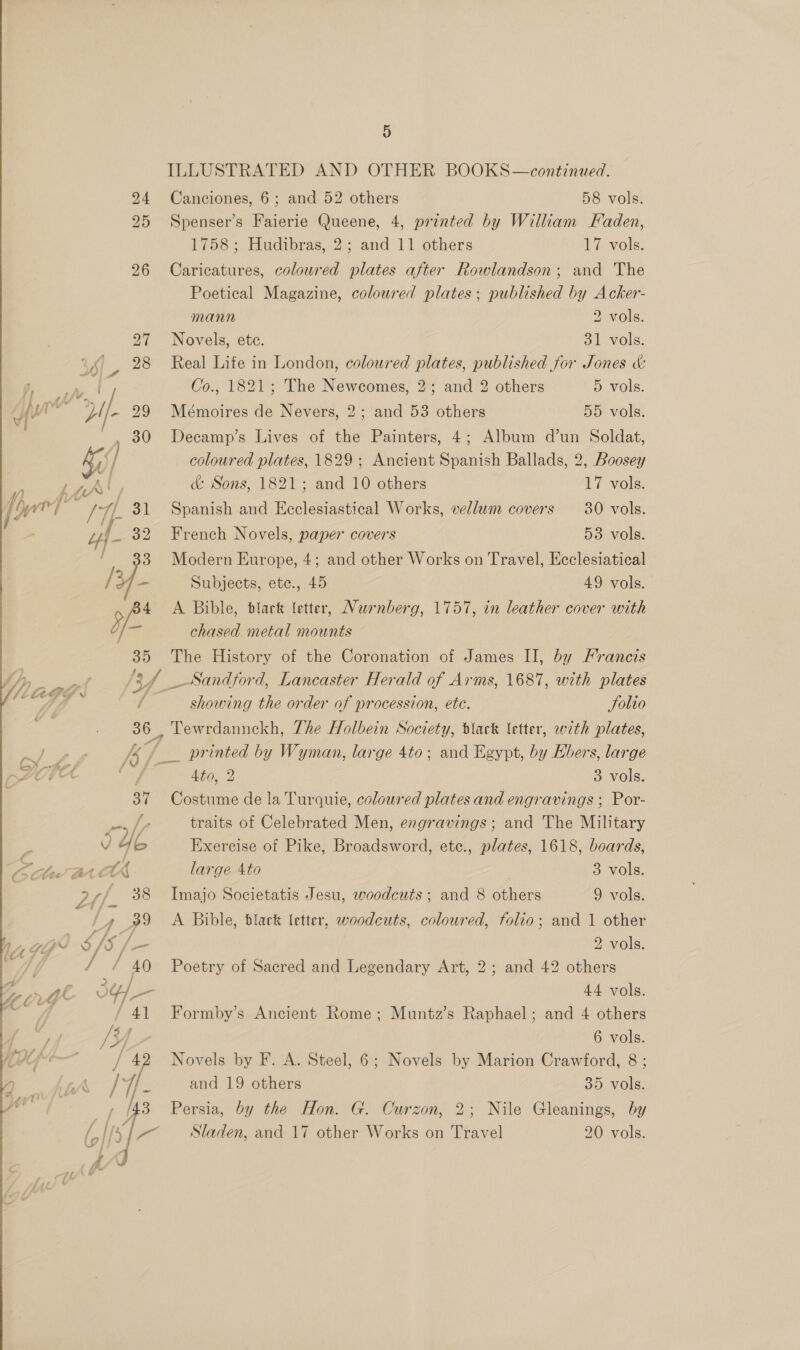 5
ILLUSTRATED AND OTHER BOOKS—continued.
24 Canciones, 6; and 52 others 58 vols.
25 Spenser's Faierie Queene, 4, printed by William Faden,
1758; Hudibras, 2; and 11 others 17 vols.
26 Caricatures, coloured plates after Rowlandson; and The
Poetical Magazine, coloured plates; published by Acker-
mann 2 vols.
27 Novels, etc. 31 vols.
28 Real Life in London, coloured plates, published for Jones &
Co., 1821; The Newcomes, 2; and 2 others 5 vols.
29 Mémoires de Nevers, 2; and 53 others 55 vols.
30 Decamp's Lives of the Painters, 4; Album d'un Soldat,
coloured plates, 1829; Ancient Spanish Ballads, 2, Boosey
& Sons, 1821; and 10 others 17 vols.
31 Spanish and Ecclesiastical Works, vellum covers 30 vols.
32 French Novels, paper covers 53 vols.
33 Modern Europe, 4; and other Works on Travel, Ecclesiatical
Subjects, etc., 45 49 vols.
34 A Bible, black letter, Nurnberg, 1757, in leather cover with
chased metal mounts
35 The History of the Coronation of James II, by Francis
Sandford, Lancaster Herald of Arms, 1687, with plates
showing the order of procession, etc. folio
36 Tewrdannckh, The Holbein Society, black letter, with plates,
printed by Wyman, large 4to; and Egypt, by Ebers, large
4to, 2 3 vols.
37 Costume de la Turquie, coloured plates and engravings; Por-
traits of Celebrated Men, engravings; and The Military
Exercise of Pike, Broadsword, etc., plates, 1618, boards,
large 4to 3 vols.
38 Imajo Societatis Jesu, woodcuts; and 8 others 9 vols.
39 A Bible, black letter, woodcuts, coloured, folio; and 1 other
2 vols.
40 Poetry of Sacred and Legendary Art, 2; and 42 others
44 vols.
41 Formby's Ancient Rome; Muntz's Raphael; and 4 others
6 vols.
42 Novels by F. A. Steel, 6; Novels by Marion Crawford, 8;
and 19 others 35 vols.
43 Persia, by the Hon. G. Curzon, 2; Nile Gleanings, by
Sladen, and 17 other Works on Travel 20 vols.